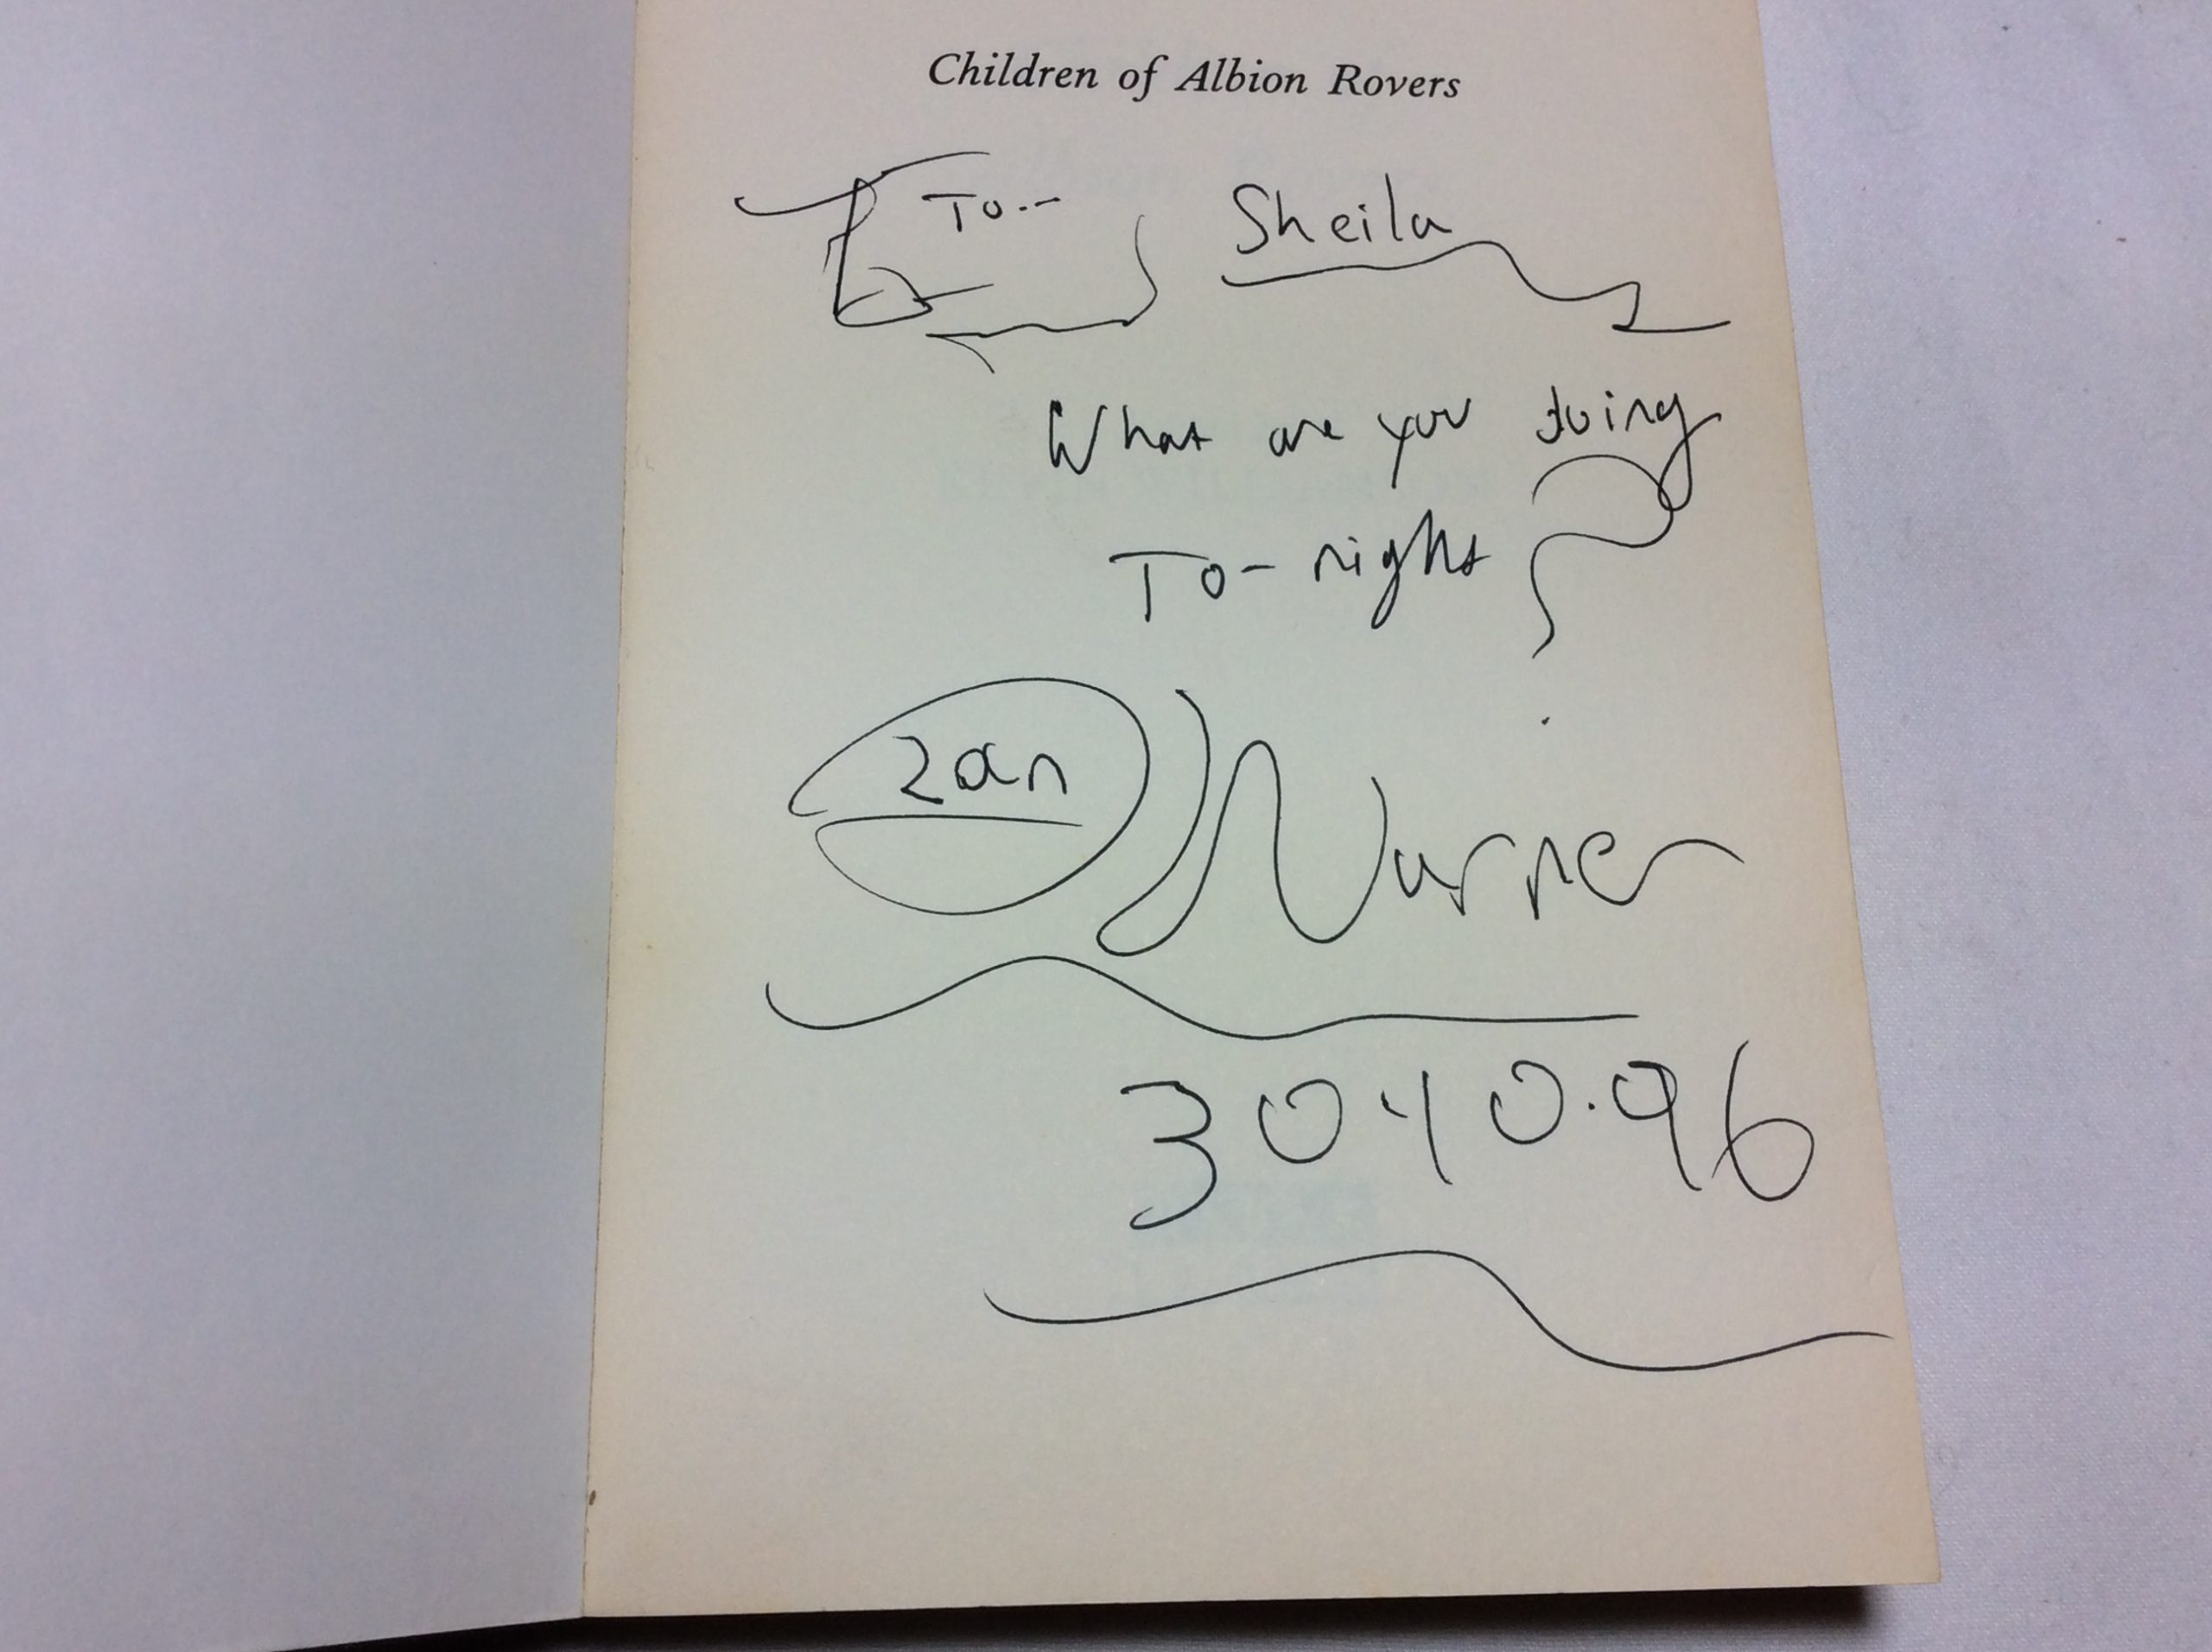 Children of Albion Rovers
To.- Sheila
What are you doing
To-night ?
Alan Warner
30.10.96